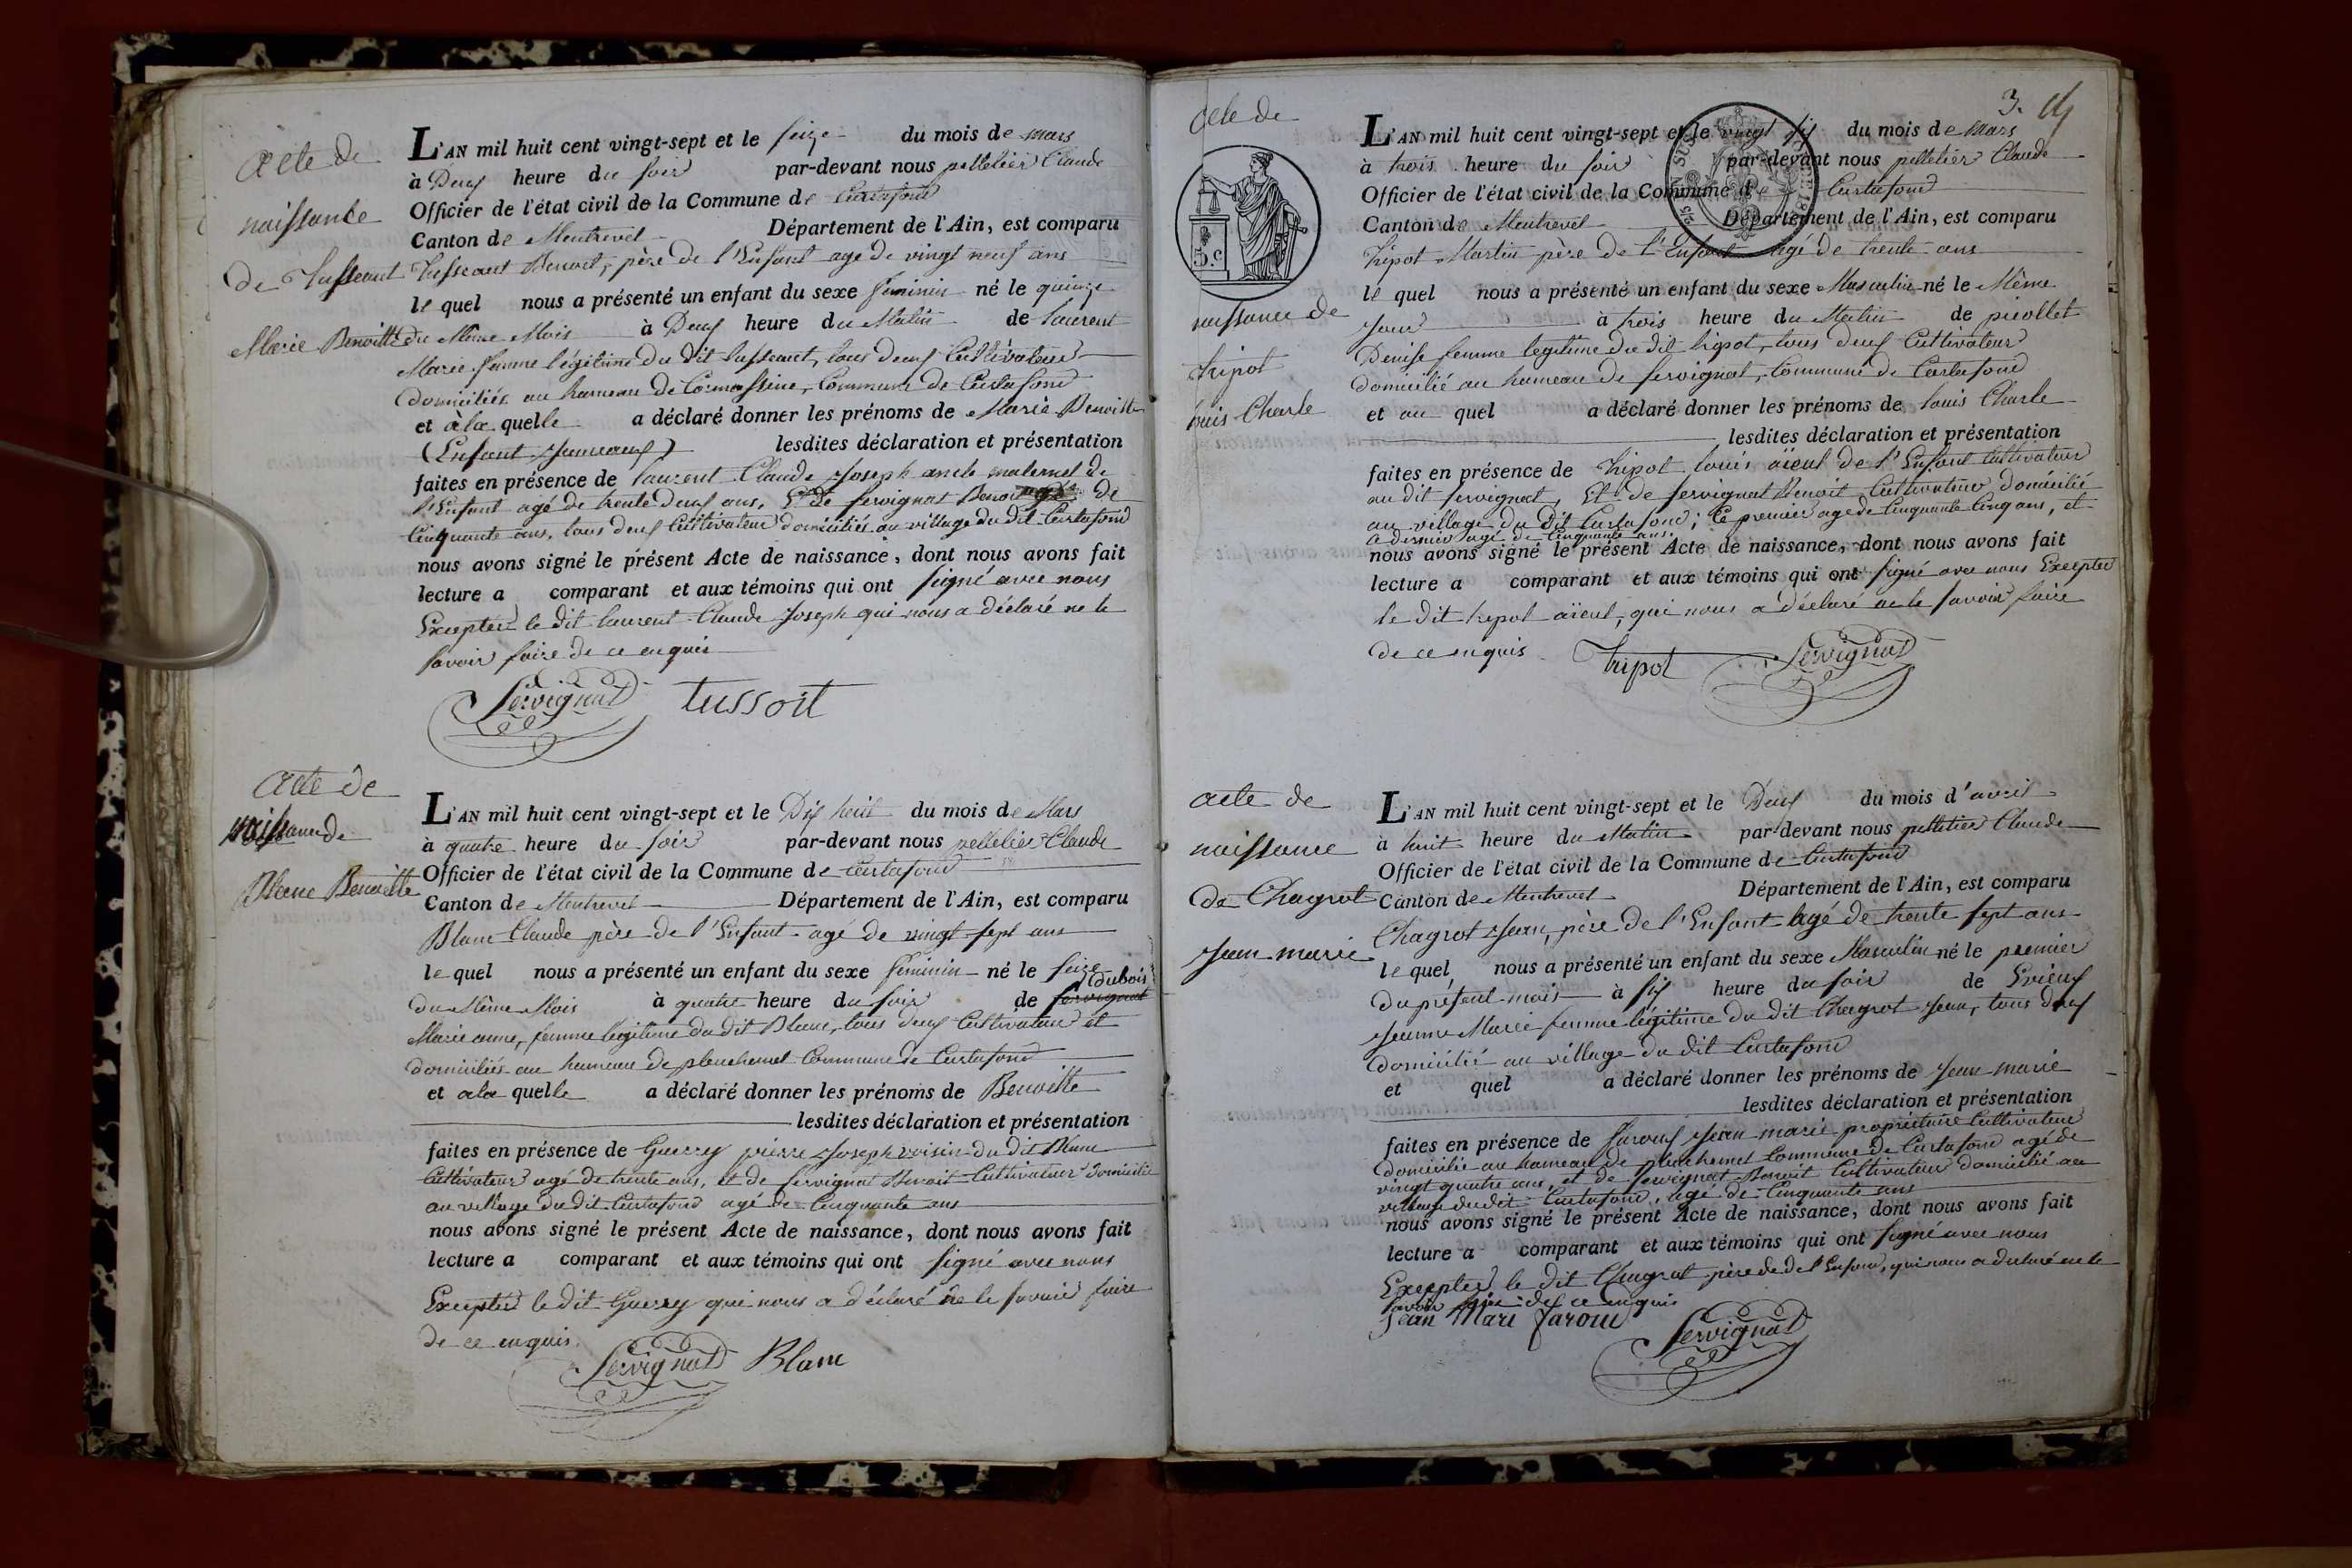 Acte de
naissance
de Tussaut
Marie Benoitte
L'AN mil huit cent vingt-sept et le seize du mois de mars
à Deux heure du soir par-devant nous pelletier Claude
Officier de l'état civil de la Commune de Curtafond
Canton de Montrevel Département de l'Ain, est comparu
Tussaut Benoit, père de l'Enfant age de vingt neuf ans
le quel nous a présenté un enfant du sexe feminin né le quinze
du Même Mois à Deux heure du Matin de laurent
Marie femme légitime du dit Tussaut, tous deux Cultivateur
domiciliés au hameau de Cormassine, Commune de Curtafond
et à la quelle a déclaré donner les prénoms de Marie Benoitte
(Enfant Jumeaux) lesdites déclaration et présentation
faites en présence de laurent Claude Joseph oncle maternel de
l'Enfant agé de trente deux ans, Et de servignat Benoit agé de
Cinquante ans, tous deux Cultivateur domiciliés au village du dit Curtafond
nous avons signé le présent Acte de naissance, dont nous avons fait
lecture a comparant et aux témoins qui ont signé avec nous
Excepter le dit laurent Claude Joseph qui nous a déclaré ne le
savoir faire de ce enquis
Servignat tussoit
Acte de
naissance de
Blanc Benoitte
L'AN mil huit cent vingt-sept et le Dix huit du mois de Mars
à quatre heure du soir par-devant nous pelletier Claude
Officier de l'état civil de la Commune de Curtafond
Canton de Montrevel Département de l'Ain, est comparu
Blanc Claude père de l'Enfant agé de vingt sept ans
le quel nous a présenté un enfant du sexe feminin né le seize
dubois
du Même Mois à quatre heure du soir de servignat
Marie anne, femme legitime du dit Blanc, tous deux Cultivateur et
domiciliés au hameau de planchemel Commune de Curtafond
et a la quelle a déclaré donner les prénoms de Benoitte
lesdites déclaration et présentation
faites en présence de Guerry pierre Joseph voisin du dit Blanc
Cultivateur agé de trente ans, et de servignat Benoit Cultivateur domicilié
au village du dit Curtafond agé de Cinquante ans
nous avons signé le présent Acte de naissance, dont nous avons fait
lecture a comparant et aux témoins qui ont signé avec nous
Excepter le dit Guerry qui nous a déclaré ne le savoir faire
de ce enquis.
Servignat Blanc
3.
Acte de
naissance de
tripot
louis Charle
L'AN mil huit cent vingt-sept et le vingt six du mois de Mars
à trois heure du soir par-devant nous pelletier Claude
Officier de l'état civil de la Commune de Curtafond
Canton de Montrevel Département de l'Ain, est comparu
Tripot Martin père de l'Enfant agé de trente ans
le quel nous a présenté un enfant du sexe Masculin né le Même
Jour à trois heure du Matin de piollet
Denise femme legitime du dit tripot, tous deux Cultivateur
domicilié au hameau de servignat, Commune de Curtafond
et au quel a déclaré donner les prénoms de louis Charle
lesdites déclaration et présentation
faites en présence de Tripot louis aïeul de l'Enfant Cultivateur
au dit servignat, Et de servignat Benoit Cultivateur domicilié
au village du dit Curtafond; le premier age de Cinquante Cinq ans, et
le dernier agé de Cinquante ans.
nous avons signé le présent Acte de naissance, dont nous avons fait
lecture a comparant et aux témoins qui ont signé avec nous Excepter
le dit tripot aïeul, qui nous a déclaré ne le savoir faire
de ce enquis
Tripot Servignat
acte de
naissance
de Chagrot
Jean marie
L'AN mil huit cent vingt-sept et le Deux du mois d'avril
à huit heure du Matin par-devant nous pelletier Claude
Officier de l'état civil de la Commune de Curtafond
Canton de Montrevel Département de l'Ain, est comparu
Chagrot Jean, père de l'Enfant agé de trente sept ans
le quel nous a présenté un enfant du sexe Masculin né le premier
du présent mois à six heure du soir de Evieux
Jeanne Marie femme légitime du dit Chagrot Jean, tous deux
domicilié au village du dit Curtafond
et quel a déclaré donner les prénoms de Jean marie
lesdites déclaration et présentation
faites en présence de Jaroux Jean marie propriétaire Cultivateur
domicilié au hameau de planchemel Commune de Curtafond agé de
vingt quatre ans, et de servignat Benoit Cultivateur domicilié au
village du dit Curtafond, agé de Cinquante ans
nous avons signé le présent Acte de naissance, dont nous avons fait
lecture a comparant et aux témoins qui ont signé avec nous
Excepter le dit Chagrot père de de l'Enfant, qui nous a déclaré ne le
savoir faire de ce enquis
Jean Mari Jaroux
Servignat